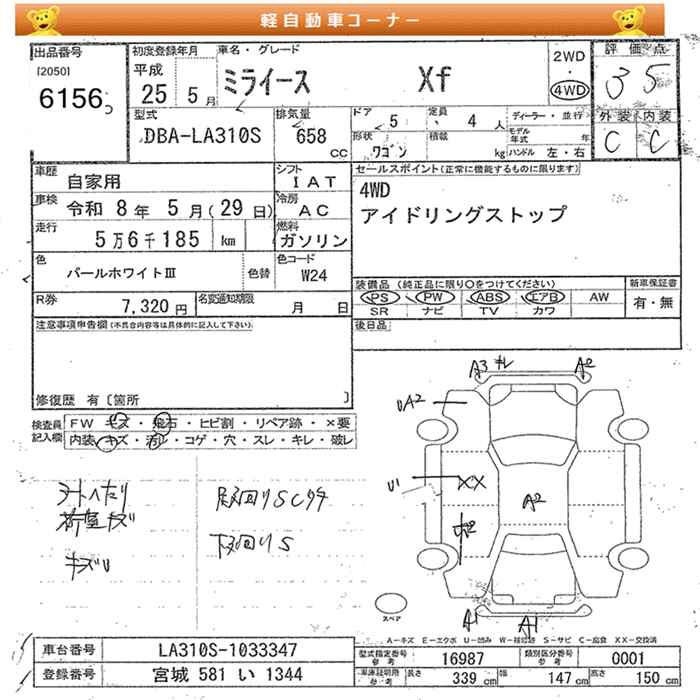 軽自動車コーナー
出品番号
[2050]
6156
初度登録年月
平成
25 5月
車名・グレード
ミライース Xf
2WD
・
4WD
評価点
3 5
外装 内装
C C
型式
DBA-LA310S
排気量
658
CC
ドア
5
定員
4人
ディーラー・並行
形状
ワゴン
積載
kg
モデル年式
年
ハンドル 左・右
車歴
自家用
シフト
IAT
車検 令和 8年 5月(29日)
冷房
AC
走行
5万6千185 km
燃料
ガソリン
色
パールホワイトⅢ
色替
色コード
W24
R券
7,320円
名変通知期限
月 日
セールスポイント(正常に機能するものに限ります)
4WD
アイドリングストップ
装備品(純正品に限り○をつけてください)
PS PW ABS エアB AW
SR ナビ TV カワ
新車保証書
有・無
後日品
注意事項申告欄(不具合内容等は具体的に記入して下さい)
修復歴 有〔箇所 〕
検査員記入欄
FW キズ・飛石・ヒビ割・リペア跡・×要
内装 キズ・汚レ・コゲ・穴・スレ・キレ・破レ
シートへたり
荷室キズ
キズU
足廻りSCサ
下廻りS
A3 キレ
A2
UA2
U1
XX
A2
A1
A1
スペア
A-キズ E-エクボ U-凹み W-補修跡 S-サビ C-腐食 XX-交換済
車台番号 LA310S-1033347
登録番号 宮城 581 い 1344
型式指定番号
参考
16987
類別区分番号
参考
0001
車庫証明用
参考
長さ 339 cm
幅 147 cm
高さ 150 cm